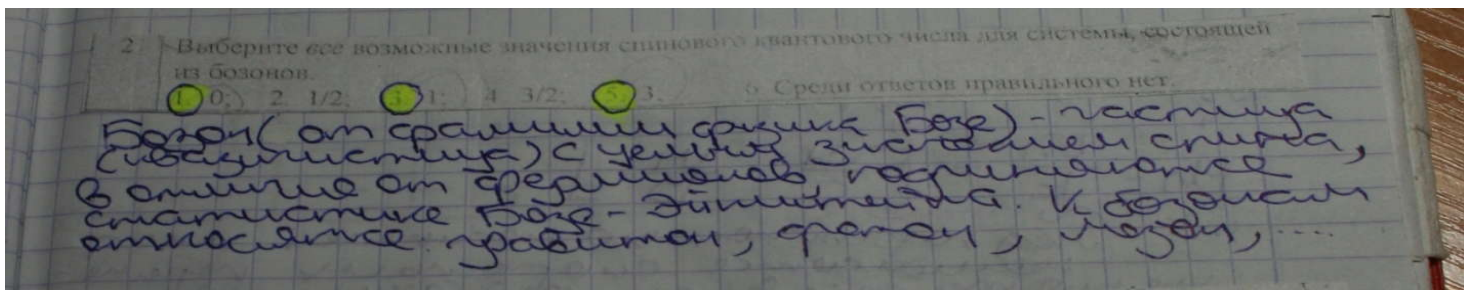 2. Выберите все возможные значения спинового квантового числа для системы, состоящей
из бозонов.
1. 0; 2. 1/2; 3. 1; 4. 3/2; 5. 3. 6. Среди ответов правильного нет.
Бозон (от фамилии физика Бозе) - частица
(квазичастица) с целым значением спина,
в отличие от фермионов, подчиняются
статистике Бозе-Эйнштейна. К бозонам
относятся: гравитон, фотон, мезон, ....